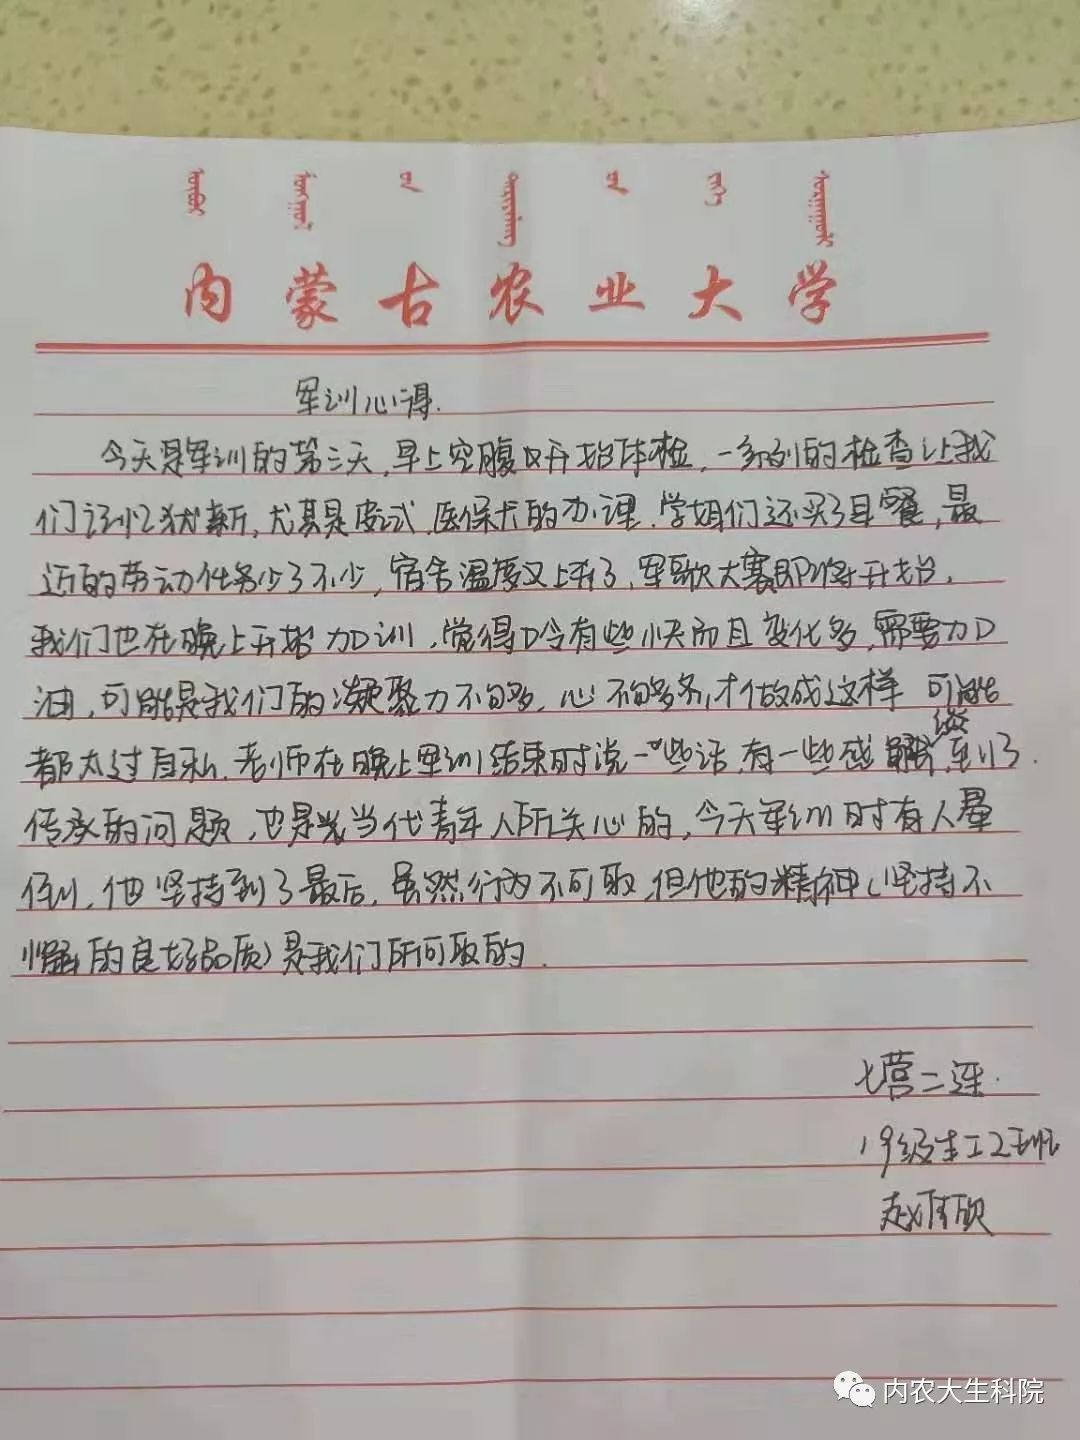 内蒙古农业大学
军训心得.
今天是军训的第三天,早上空腹又开始体检,一系列的检查让我
们记忆犹新,尤其是皮试,医保卡的办理,学姐们还买了早餐,最
近的劳动任务少了不少,宿舍温度又上升了,军歌大赛即将开始,
我们也在晚上开始加训,觉得口令有些快而且变化多,需要加
油,可能是我们的凝聚力不够,心不够齐,才做成这样 可能
都太过自私,老师在晚上军训结束时说一些话,有一些感触,到了
传承的问题,也是当代青年人所关心的,今天军训时有人晕
倒,他坚持到了最后,虽然行为不可取,但他的精神(坚持不
懈的良好品质)是我们所可取的.
七营二连.
19级生工2班
赵佳欣
内农大生科院